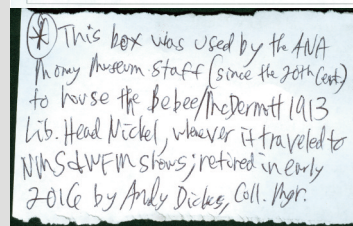 * This box was used by the ANA
Money Museum staff (since the 20th Cent.)
to house the Bebee/McDermott 1913
Lib. Head Nickel, whenever it traveled to
NMS & WFM shows; retired in early
2016 by Andy Dickes, Coll. Mgr.